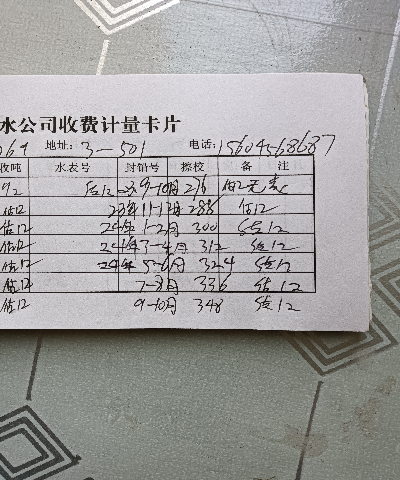 水公司收费计量卡片
069 地址: 3-501 电话: 15604568687
收吨 水表号 封铅号 擦校 备 注
估12 9-10月 276
估12 23年11-12月 288 估12
估12 24年1-2月 300 估12
估12 24年3-4月 312 估12
估12 24年5-6月 324 估12
估12 7-8月 336 估12
估12 9-10月 348 估12